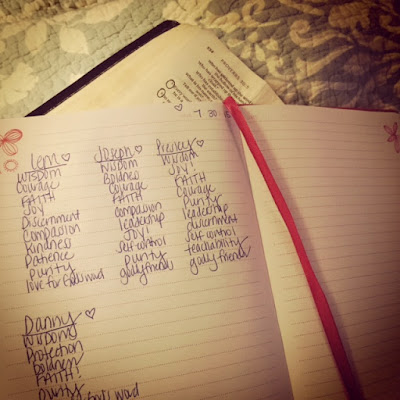 PROVERBS
7 30
WISDOM
Courage
FAITH
JOY
Discernment
Compassion
Kindness
Patience
purity
love for God's word
Joseph ♡
WISDOM
Boldness
Courage
FAITH
compassion
leadership
JOY!
self control
purity
godly friends
Presley ♡
WISDOM
JOY!
FAITH
Courage
Purity
Leadership
discernment
self control
teachability
godly friends
Danny ♡
WISDOM
Protection
boldness
FAITH!
purity
God's word